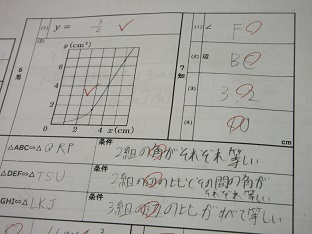 (1) y = 1/2
(2)
y(cm²)
6
思
0 2 4 x(cm)
7
知
(1) ∠ F
(2) 辺 B
(3) 3:2
(4)
cm
△ABC∽△QRP 条件 2組の角がそれぞれ等しい
△DEF∽△TSU 条件 2組の辺の比とその間の角がそれぞれ等しい
GHI∽△LKJ 条件 3組の辺の比がすべて等しい